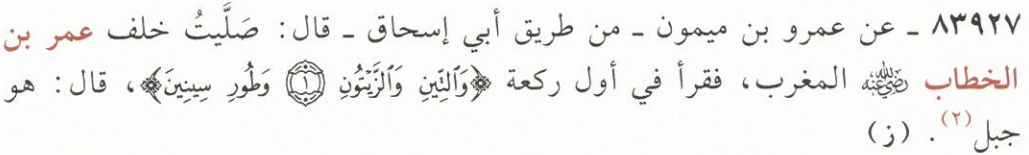 ٨٣٩٢٧ ـ عن عمرو بن ميمون ـ من طريق أبي إسحاق ـ قال: صَلَّيتُ خلف عمر بن
الخطاب رضي الله عنه المغرب، فقرأ في أول ركعة ﴿وَٱلتِّينِ وَٱلزَّيْتُونِ ۝١ وَطُورِ سِينِينَ﴾، قال: هو
جبل(٢). (ز)